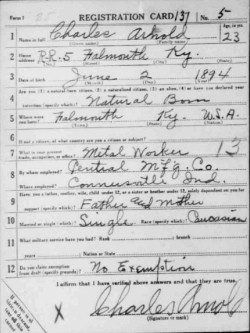 Form 1 REGISTRATION CARD 131 No. 5
1 Name in full Charles Arnold Age, in yrs. 23
2 Home address R.R. 5 Falmouth Ky.
3 Date of birth June 2 1894
4 Are you (1) a natural-born citizen, (2) a naturalized citizen, (3) an alien, (4) or have you declared your intention (specify which)? Natural Born
5 Where were you born? Falmouth Ky. U.S.A.
6 If not a citizen, of what country are you a citizen or subject?
7 What is your present trade, occupation, or office? Metal Worker 13
8 By whom employed? Central Mf'g. Co.
Where employed? Connersville Ind.
9 Have you a father, mother, wife, child under 12, or a sister or brother under 12, solely dependent on you for support (specify which)? Father and Mother
10 Married or single (which)? Single Race (specify which)? Caucasian
11 What military service have you had? Rank branch
years Nation or State
12 Do you claim exemption from draft (specify grounds)? No Exemption
I affirm that I have verified above answers and that they are true.
X Charles Arnold
(Signature or mark)